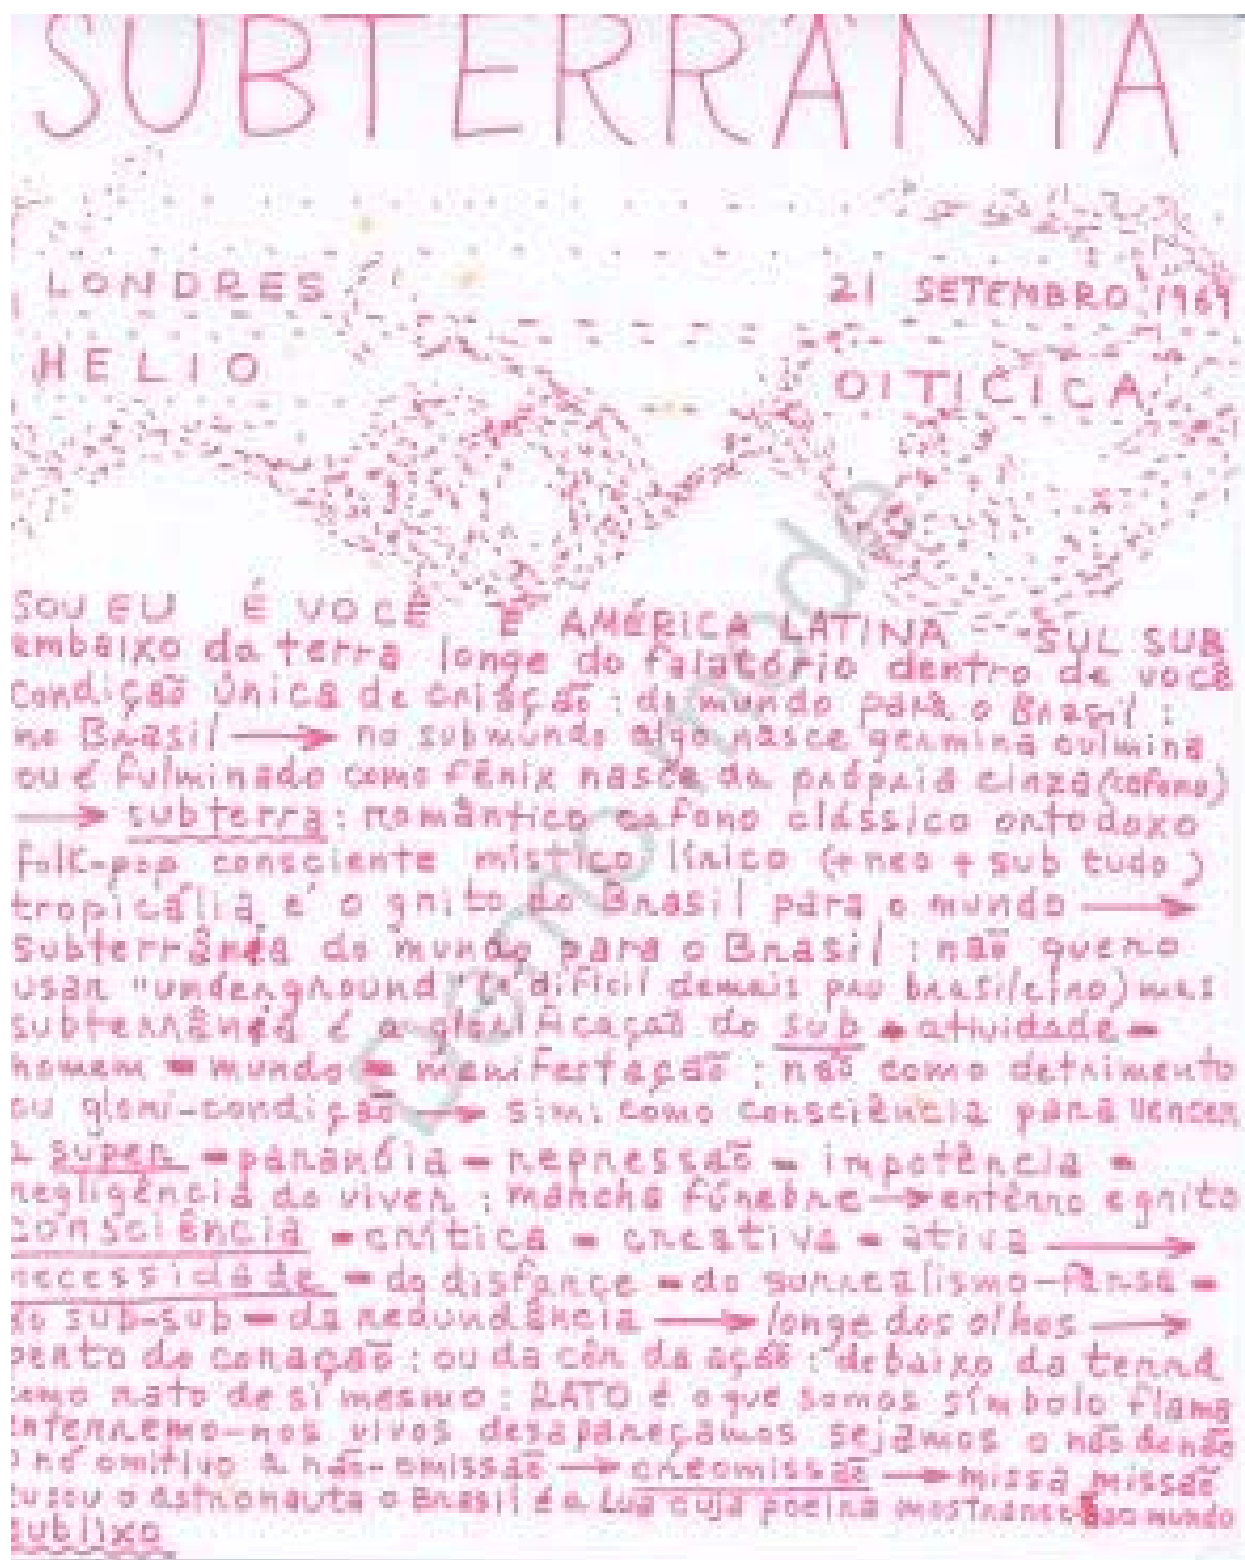 SUBTERRÂNIA
LONDRES 21 SETEMBRO 1969
HELIO OITICICA
SOU EU É VOCÊ E AMÉRICA LATINA --- SUL SUB
embaixo da terra longe do falatório dentro de você
condição única de criação : do mundo para o Brasil :
no Brasil → no submundo algo nasce germina culmina
ou é fulminado como fênix nasce da própria cinza (cafona)
→ subterra : romântico cafono clássico ortodoxo
folk-pop consciente místico lírico (+ neo + sub tudo)
tropicália é o grito do Brasil para o mundo →
subterrânea do mundo para o Brasil : não quero
usar "underground" (é difícil demais pro brasileiro) mas
subterrânea é a glorificação do sub - atividade -
homem - mundo - manifestação : não como detrimento
ou glori-condição → sim : como consciência para vencer
a super - paranóia - repressão - impotência -
negligência do viver : mancha fúnebre → entêrro e grito
consciência - crítica - creativa - ativa →
necessidade - do disfarçe - do surrealismo-farsa -
do sub-sub - da redundância → longe dos olhos →
perto do coração : ou da côr da ação : debaixo da terra
como rato de si mesmo : RATO é o que somos símbolo flama
enterremo-nos vivos desapareçamos sejamos o não do não
omitivo a não-omissão → creomissão → missa missão
eu sou o astronauta o Brasil é a Lua cuja poeira ao mundo
sublixo
Demo